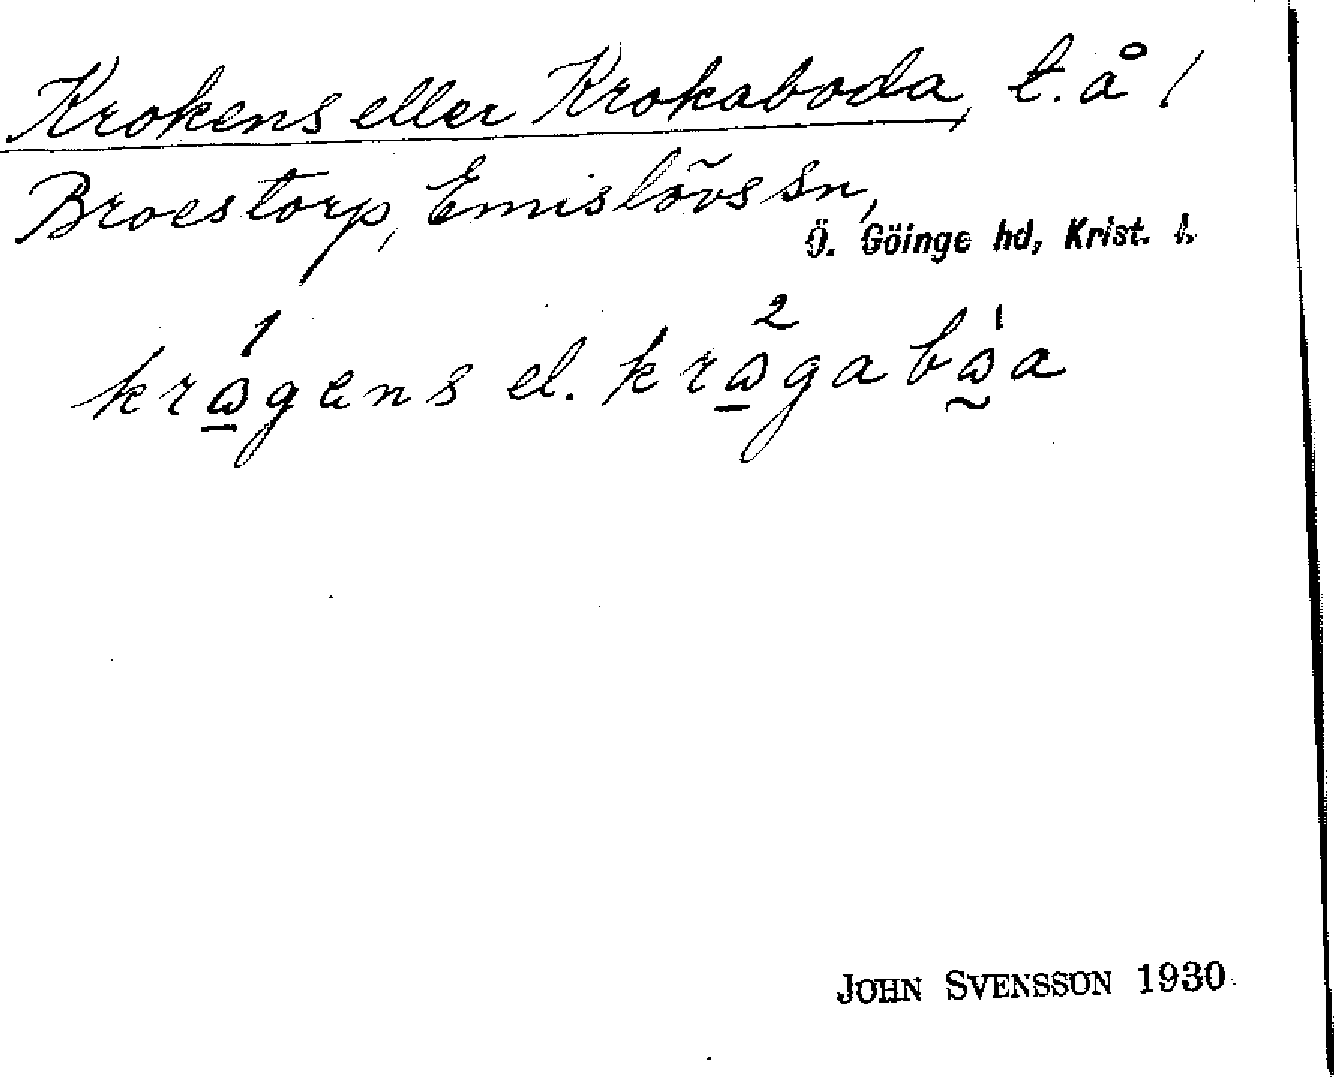 Krokens eller Krokaboda, t. å /
Broestorp, Emislövs sn,
Ö. Göinge hd, Krist. l.
1 2 1
krωgens el. krωgabωa
JOHN SVENSSON 1930